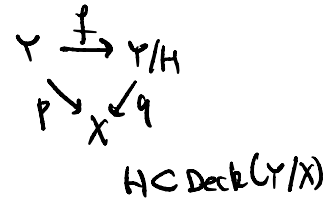 f
Y → Y/H
p q
X
H < Deck(Y/X)